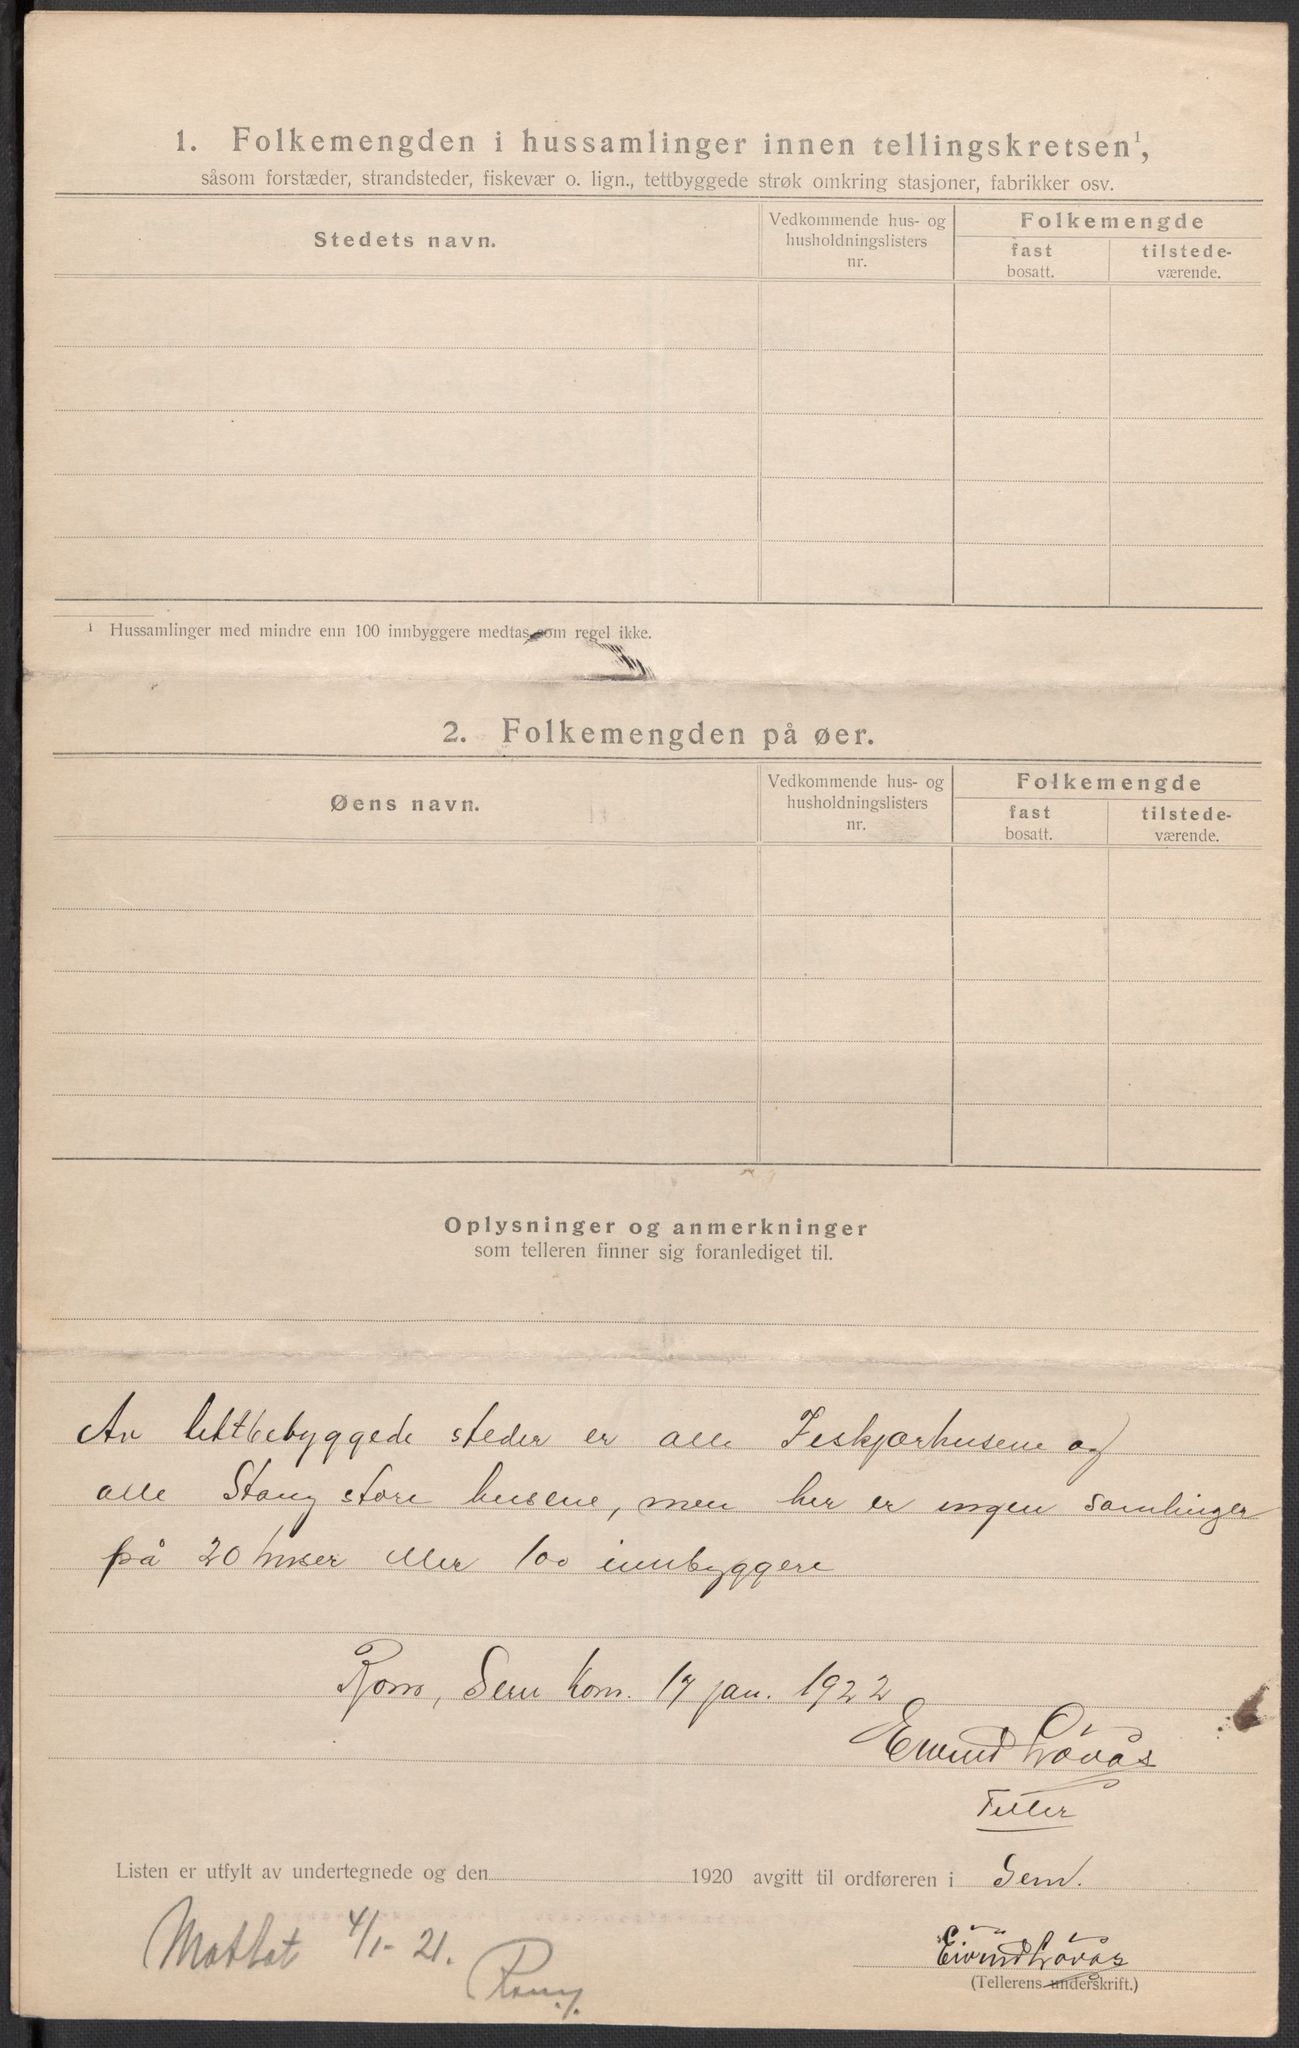 1. Folkemengden i hussamlinger innen tellingskretsen¹,
såsom forstæder, strandsteder, fiskevær o. lign., tettbyggede strøk omkring stasjoner, fabrikker osv.
Stedets navn.
Vedkommende hus- og
husholdningslisters
nr.
Folkemengde
fast
bosatt.
tilstede-
værende.
¹ Hussamlinger med mindre enn 100 innbyggere medtas som regel ikke.
2. Folkemengden på øer.
Øens navn.
Vedkommende hus- og
husholdningslisters
nr.
Folkemengde
fast
bosatt.
tilstede-
værende.
Oplysninger og anmerkninger
som telleren finner sig foranlediget til.
Av tettbebyggede steder er alle husene og
alle husene, men her er ingen samlinger
på 20 huser eller 100 innbyggere
Rom, Sem kom. 17 jan. 1922
Eivind Løvås
Teller
Listen er utfylt av undertegnede og den 1920 avgitt til ordføreren i Sem.
Mottat 4/1-21.
Eivind Løvås
(Tellerens underskrift.)